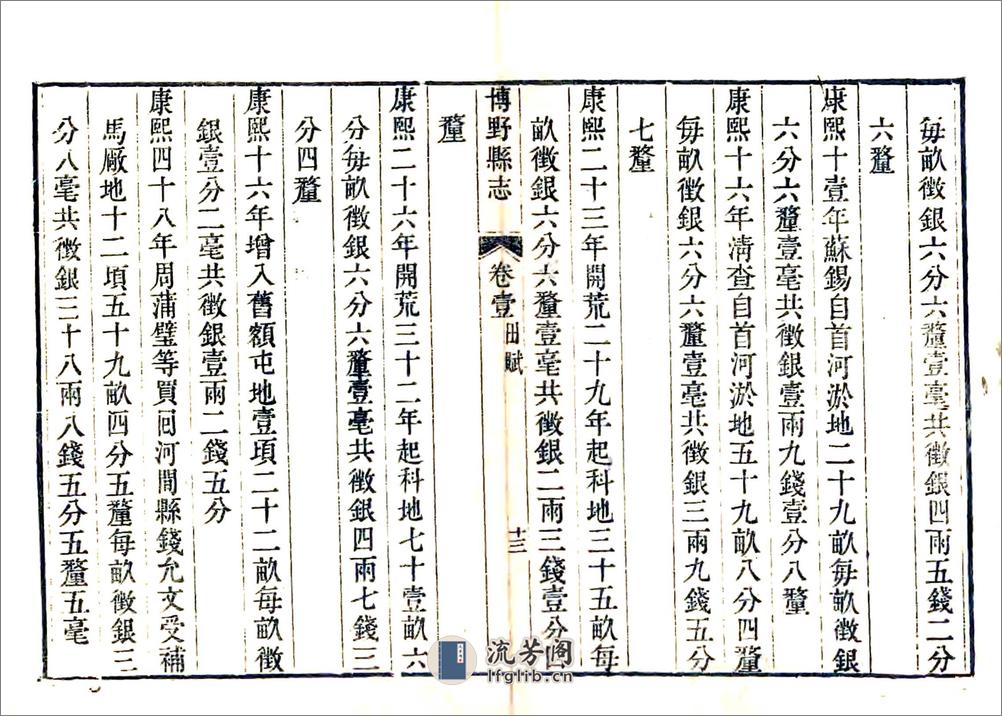 每畝徵銀六分六釐壹毫共徵銀四兩五錢二分
六釐
康熙十壹年蘇錫自首河淤地二十九畝每畝徵銀
六分六釐壹毫共徵銀壹兩九錢壹分八釐
康熙十六年淸查自首河淤地五十九畝八分四釐
每畝徵銀六分六釐壹毫共徵銀三兩九錢五分
七釐
康熙二十三年開荒二十九年起科地三十五畝每
畝徵銀六分六釐壹毫共徵銀二兩三錢壹分四
博野縣志 卷壹 田賦 十三
釐
康熙二十六年開荒三十二年起科地七十壹畝六
分每畝徵銀六分六釐壹毫共徵銀四兩七錢三
分四釐
康熙十六年增入舊額屯地壹項二十二畝每畝徵
銀壹分二毫共徵銀壹兩二錢五分
康熙四十八年周蒲璧等買回河間縣錢允文受補
馬厰地十二項五十九畝四分五釐每畝徵銀三
分八毫共徵銀三十八兩八錢五分五釐五毫
流芳阁
lfglib.cn